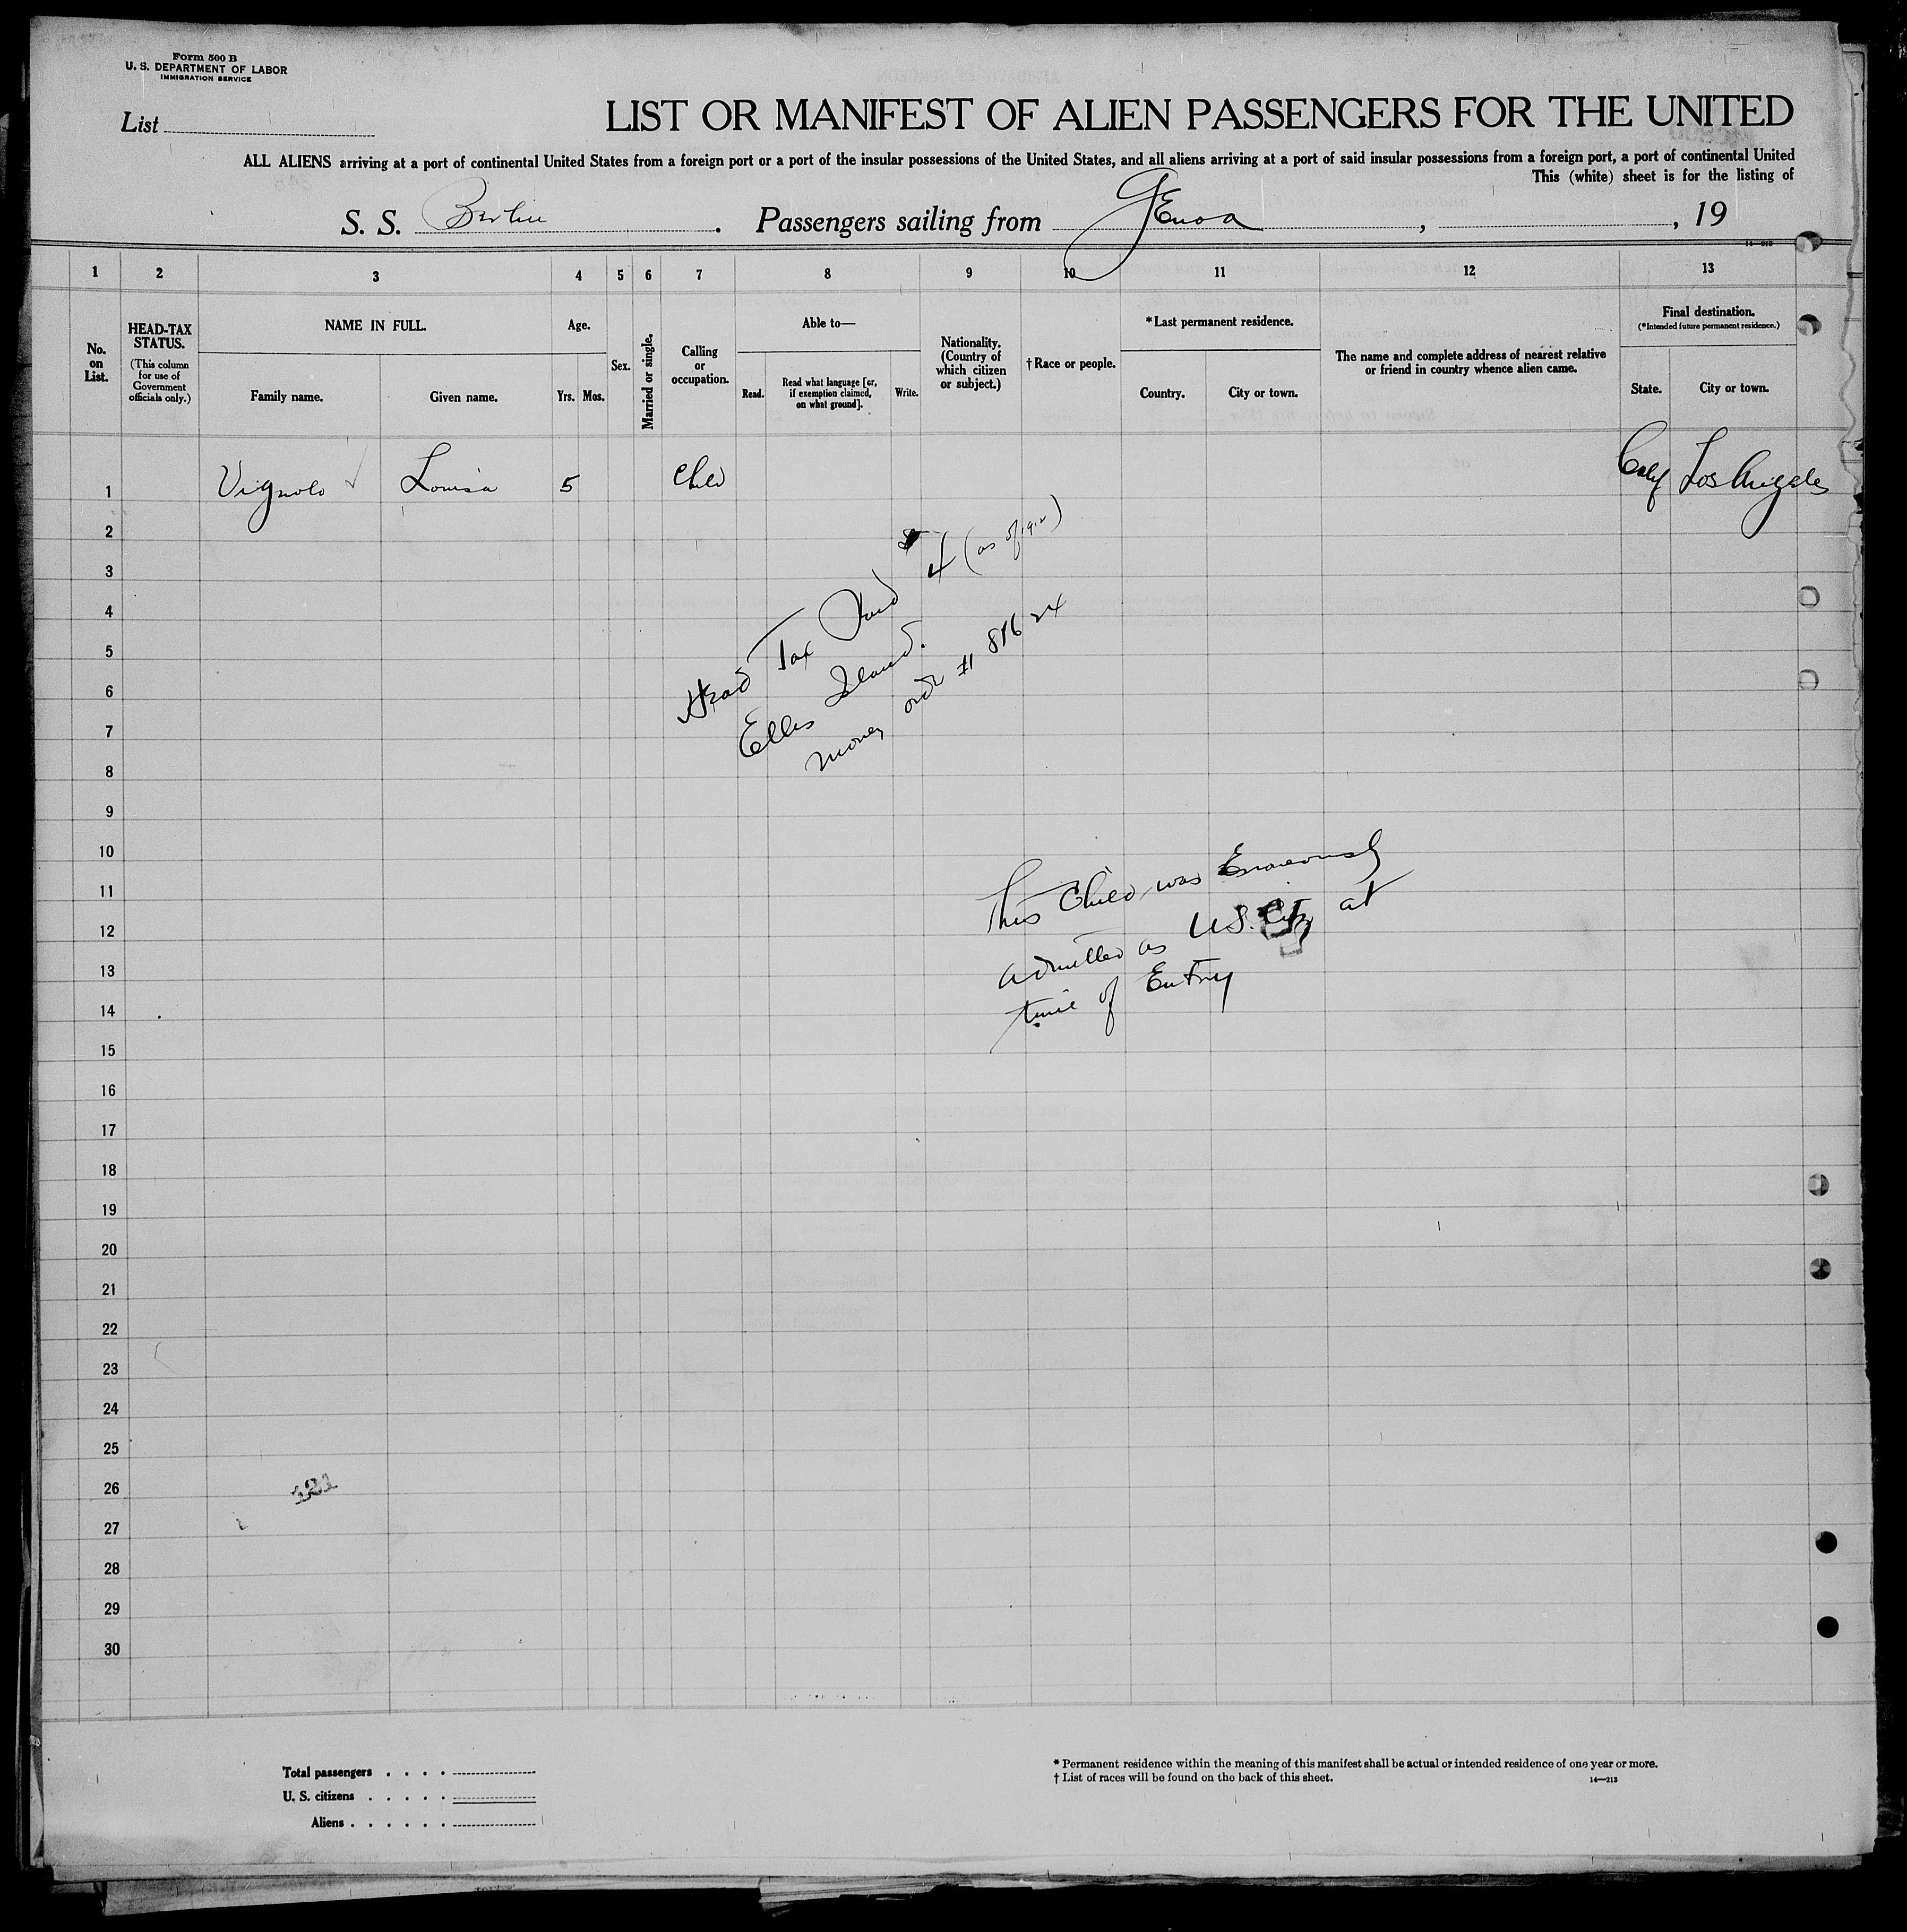 Form 500 B
U. S. DEPARTMENT OF LABOR
IMMIGRATION SERVICE
List
LIST OR MANIFEST OF ALIEN PASSENGERS FOR THE UNITED
ALL ALIENS arriving at a port of continental United States from a foreign port or a port of the insular possessions of the United States, and all aliens arriving at a port of said insular possessions from a foreign port, a port of continental United
This (white) sheet is for the listing of
S. S. Berlin . Passengers sailing from Genoa , , 19
1 2 3 4 5 6 7 8 9 10 11 12 13
No. on List.
HEAD-TAX STATUS.
(This column for use of Government officials only.)
NAME IN FULL.
Family name. Given name.
Age.
Yrs. Mos.
Sex.
Married or single.
Calling or occupation.
Able to—
Read.
Read what language [or, if exemption claimed, on what ground].
Write.
Nationality. (Country of which citizen or subject.)
† Race or people.
* Last permanent residence.
Country. City or town.
The name and complete address of nearest relative or friend in country whence alien came.
Final destination.
(*Intended future permanent residence.)
State. City or town.
1 Vignolo Louisa 5 Child Calif Los Angeles
2
3
4
5
6
7
8
9
10
11
12
13
14
15
16
17
18
19
20
21
22
23
24
25
26
27
28
29
30
Head Tax Paid $4 (as of 1912)
Ellis Island.
money ordr # 81624
This Child was Erroneously
admitted as U.S. Citz at
time of Entry
121
Total passengers
U. S. citizens
Aliens
* Permanent residence within the meaning of this manifest shall be actual or intended residence of one year or more.
† List of races will be found on the back of this sheet.
14—213